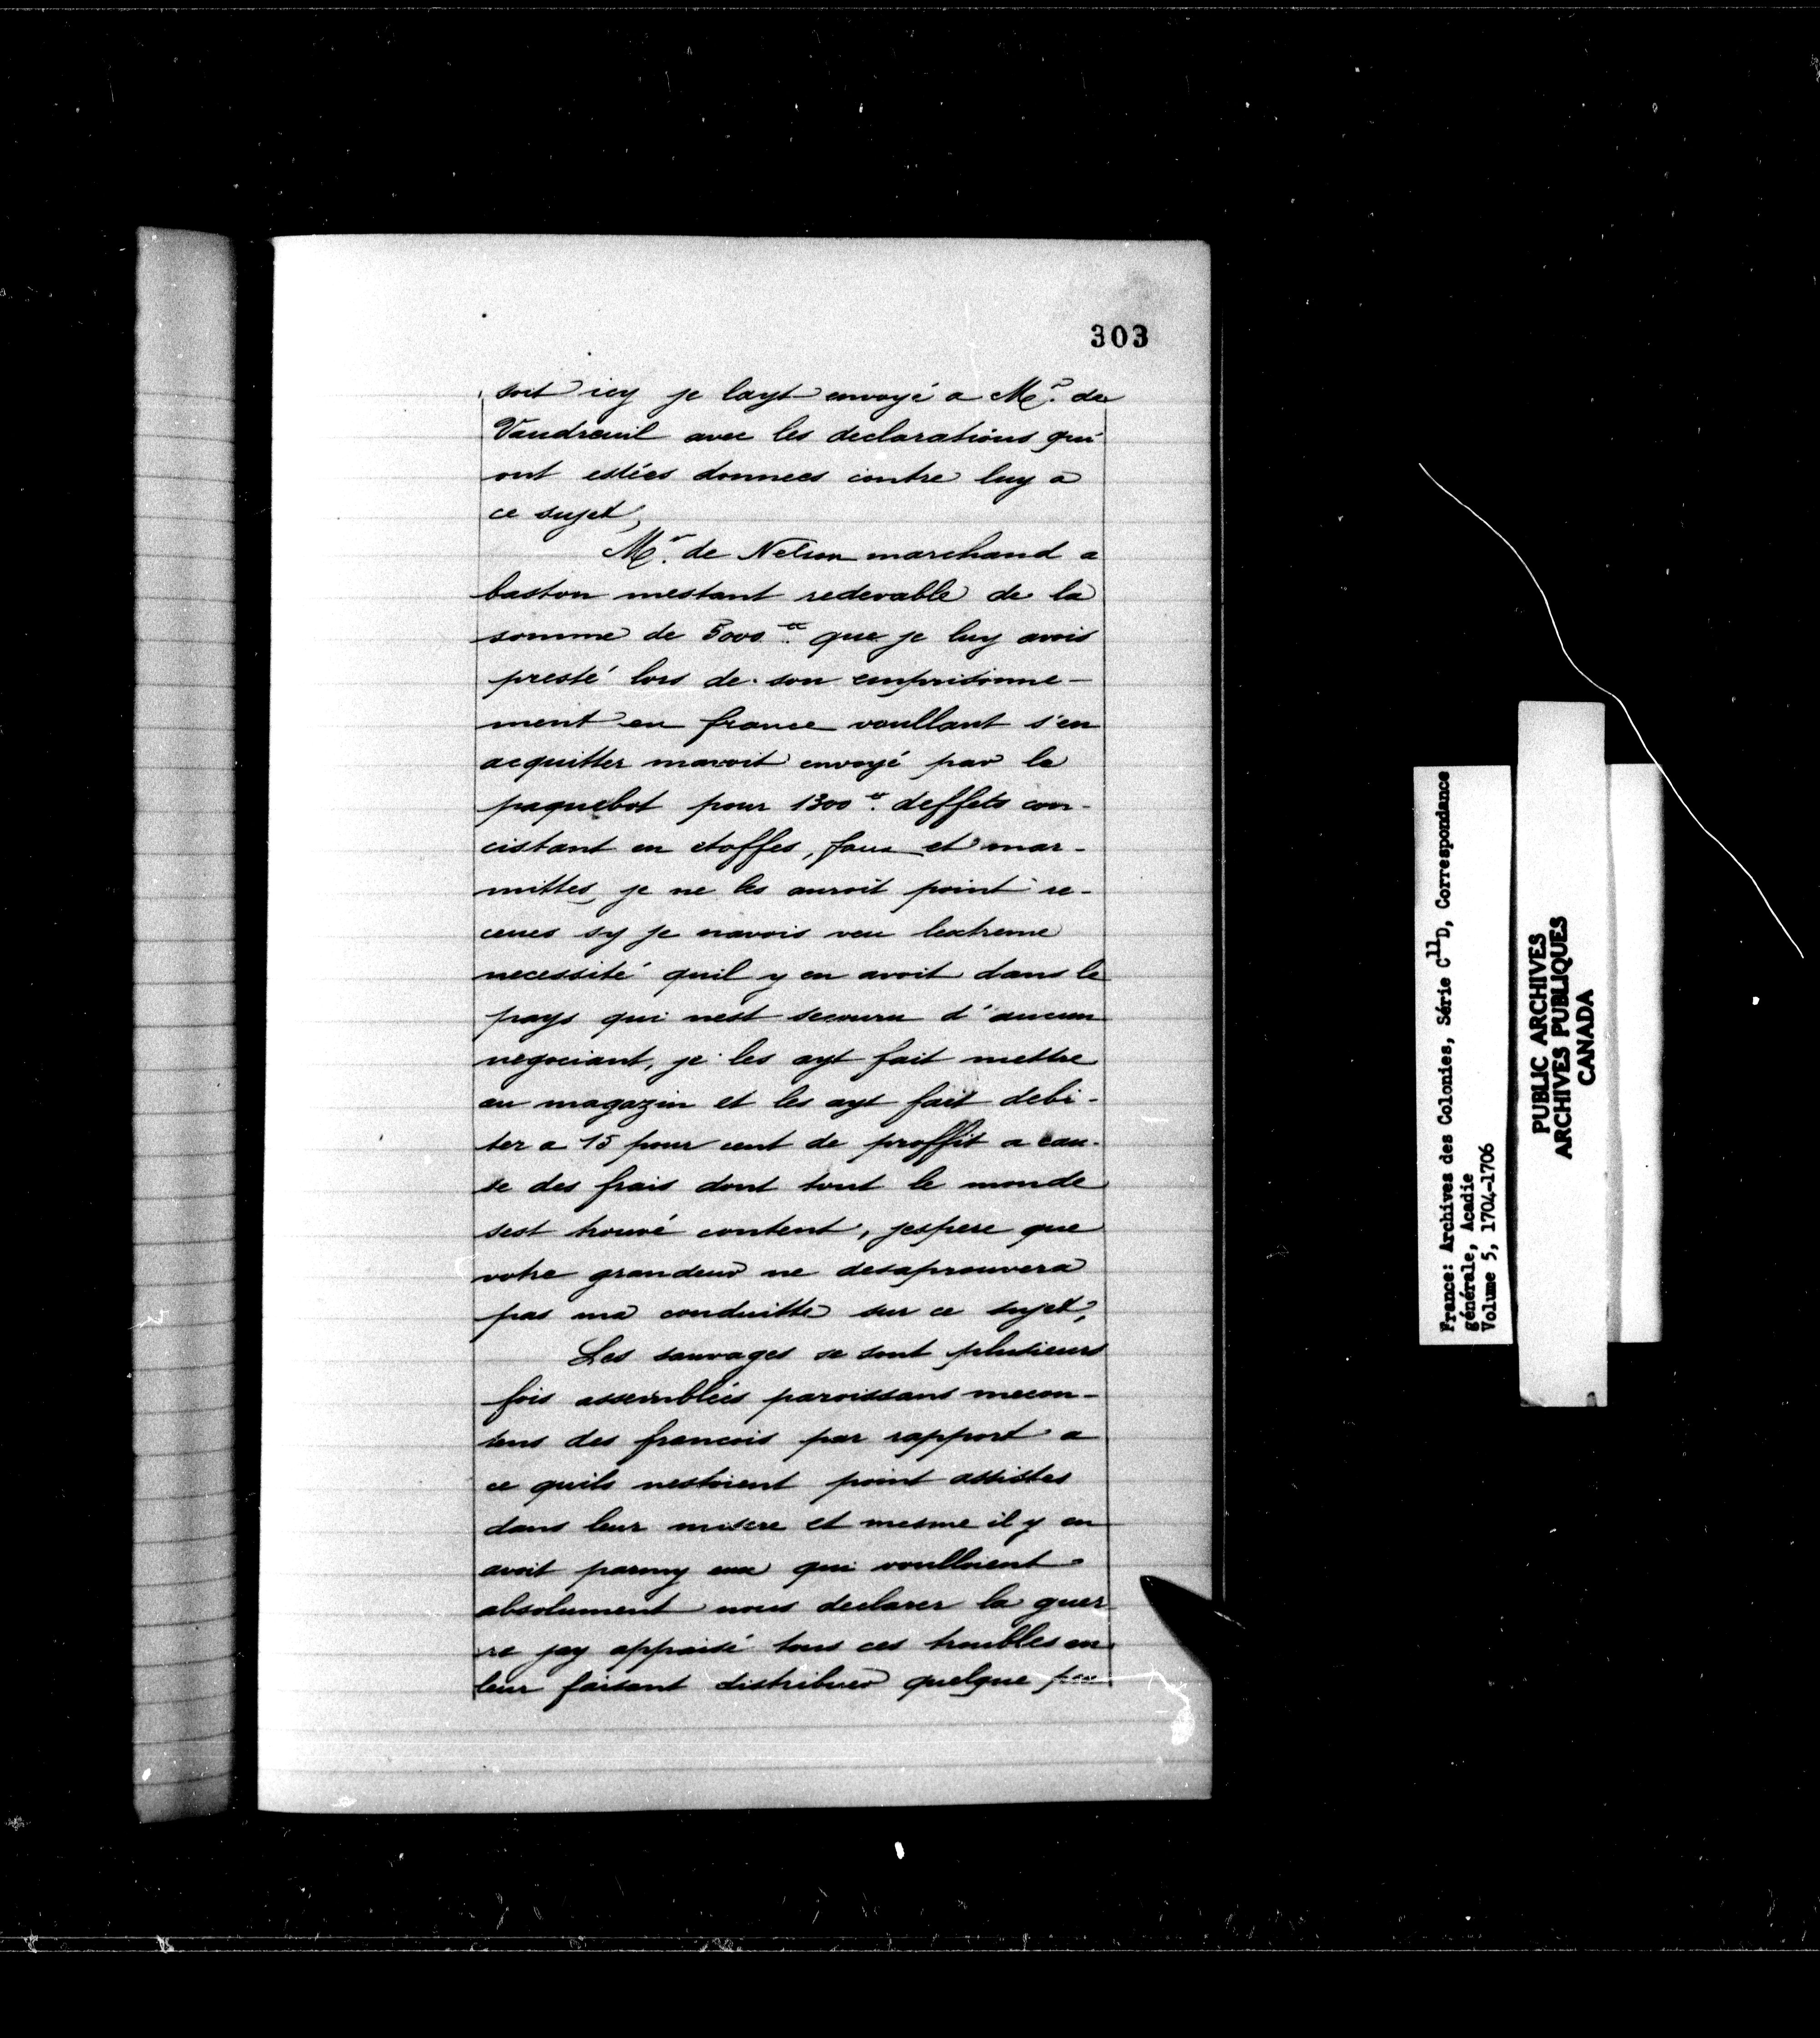 303
soit icy je layt envoyé a Mr. de
Vaudreuil avec les declarations qui
ont estées donnees contre luy a
ce sujet,
Mr. de Nelson marchand a
baston mestant redevable de la
somme de 5000 tt. que je luy avois
presté lors de son emprisonne-
ment en france voullant s'en
acquitter mavoit envoyé par le
paquebot pour 1300 tt. deffets con-
cistant en etoffes, faux et mar-
mittes, je ne les auroit point re-
ceues sy je navois veu lextreme
necessité quil y en avoit dans le
pays qui nest secouru d'aucun
negociant, je les ayt fait mettre
au magazin et les ayt fait debi-
ter a 15 pour cent de proffit a cau-
se des frais dont tout le monde
sest trouvé content, jespere que
votre grandeur ne desaprouvera
pas ma conduitte sur ce sujet,
Les sauvages se sont plusieurs
fois assemblées paroissans mecon-
tens des francois par rapport a
ce quils nestoient point assistes
dans leur misere et mesme il y en
avoit parmy eux qui voulloient
absolument nous declarer la guer
re jay appaisé tous ces troubles en
leur faisant distribuer quelque peu
France: Archives des Colonies, Série C11D, Correspondance
générale, Acadie
Volume 5, 1704-1706
PUBLIC ARCHIVES
ARCHIVES PUBLIQUES
CANADA